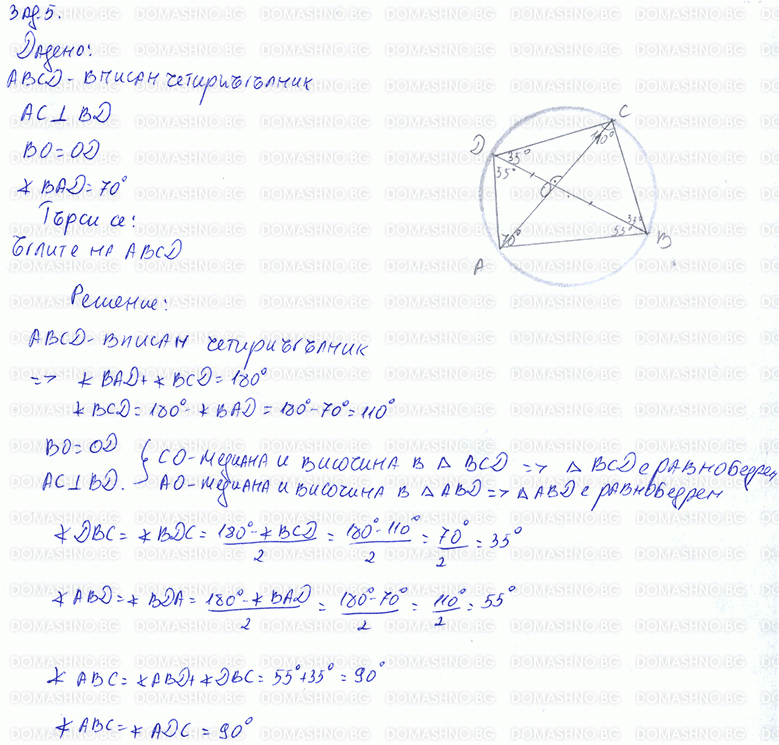 Зад.5.
Дадено:
ABCD - вписан четириъгълник
AC⊥BD
BO=OD
∢BAD=70°
Търси се:
ъглите на ABCD
D 35° 110° C
55°
O
70° 55° 35° B
A
Решение:
ABCD - вписан четириъгълник
=> ∢BAD+∢BCD=180°
∢BCD=180°-∢BAD=180°-70°=110°
BO=OD { CO-медиана и височина в △ BCD => △ BCD е равнобедрен
AC⊥BD. AO-медиана и височина в △ ABD => △ ABD е равнобедрен
∢DBC = ∢BDC = (180°-∢BCD)/2 = (180°-110°)/2 = 70°/2 = 35°
∢ABD = ∢BDA = (180°-∢BAD)/2 = (180°-70°)/2 = 110°/2 = 55°
∢ABC = ∢ABD+∢DBC = 55°+35° = 90°
∢ABC = ∢ADC = 90°
DOMASHNO.BG